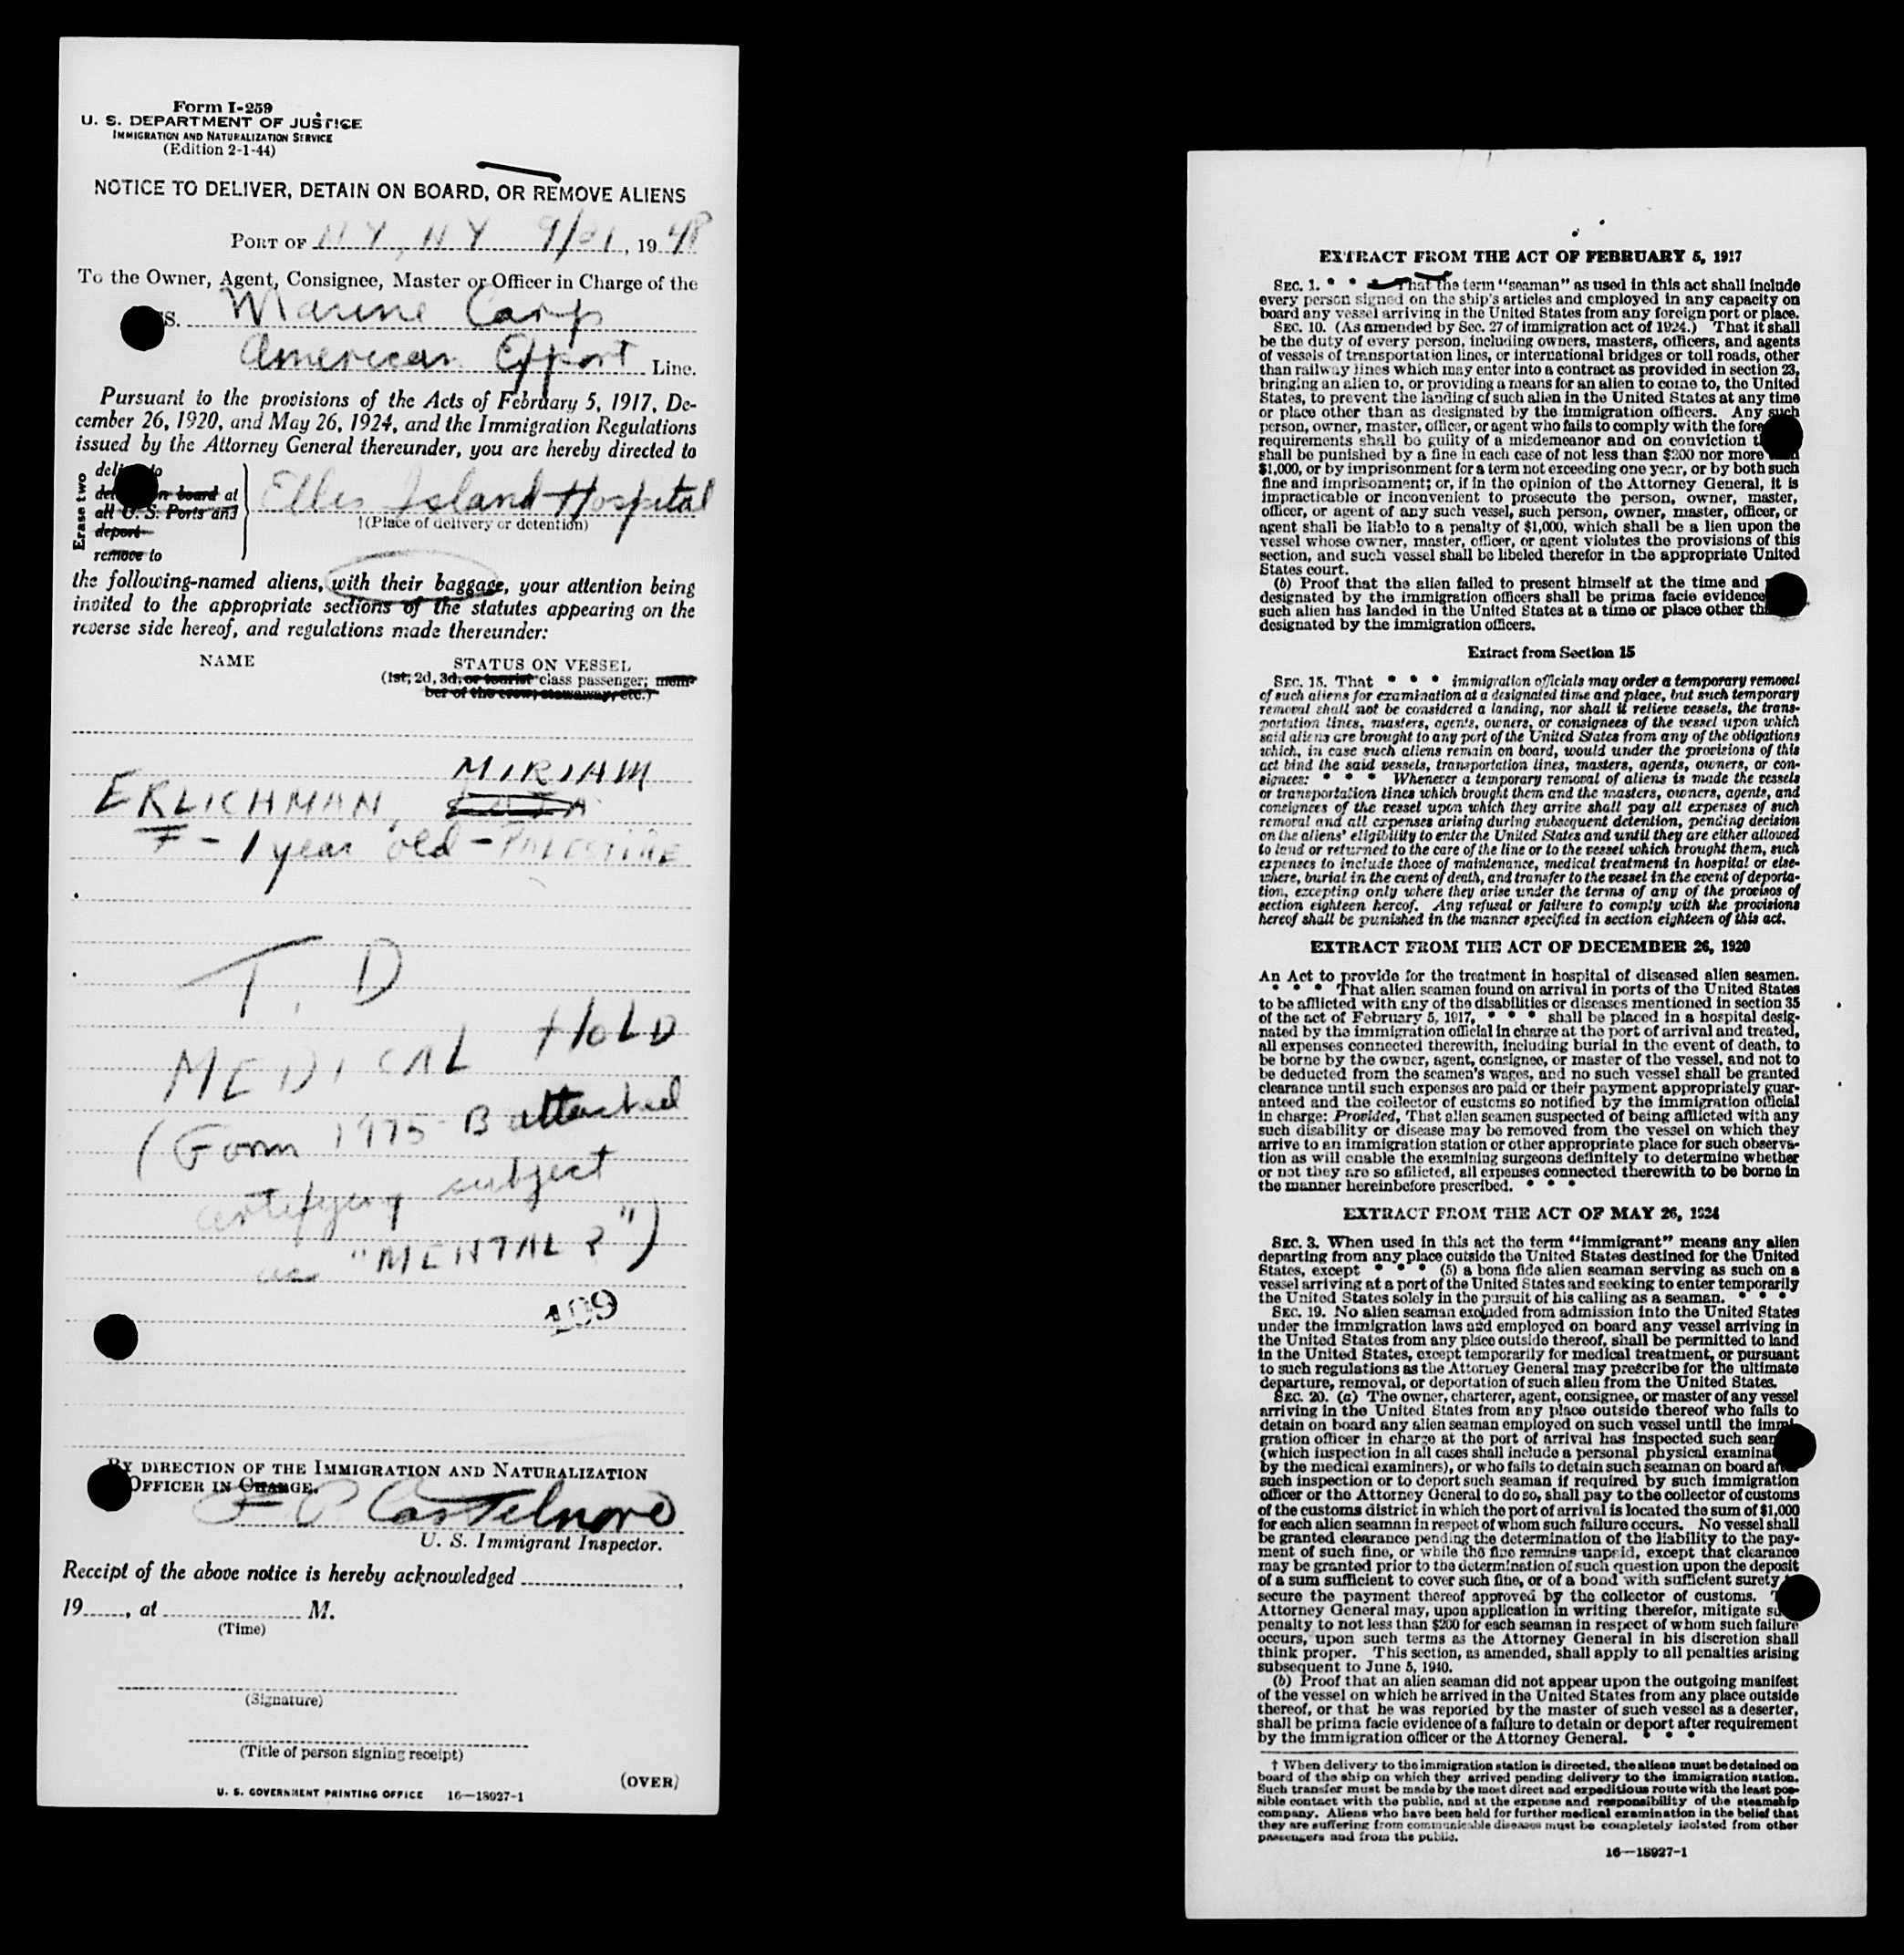 Form I-259
U. S. DEPARTMENT OF JUSTICE
IMMIGRATION AND NATURALIZATION SERVICE
(Edition 2-1-44)
NOTICE TO DELIVER, DETAIN ON BOARD, OR REMOVE ALIENS
PORT OF N Y, N Y 9/21, 1948
To the Owner, Agent, Consignee, Master or Officer in Charge of the
SS. Marine Carp
American Export Line.
Pursuant to the provisions of the Acts of February 5, 1917, De-
cember 26, 1920, and May 26, 1924, and the Immigration Regulations
issued by the Attorney General thereunder, you are hereby directed to
Erase two
deliver to
detain on board at
all U. S. Ports and
deport
remove to
Ellis Island Hospital
†(Place of delivery or detention)
the following-named aliens, with their baggage, your attention being
invited to the appropriate sections of the statutes appearing on the
reverse side hereof, and regulations made thereunder:
NAME STATUS ON VESSEL
(1st, 2d, 3d, or tourist class passenger; mem-
ber of the crew; stowaway, etc.)
MIRIAM
ERLICHMAN,
F - 1 year old - PALESTINE
T. D
MEDICAL HOLD
(Form 1975 B attached
certifying subject
as "MENTAL ?")
109
BY DIRECTION OF THE IMMIGRATION AND NATURALIZATION
OFFICER IN CHARGE.
F P Castelnore
U. S. Immigrant Inspector.
Receipt of the above notice is hereby acknowledged
19......, at M.
(Time)
(Signature)
(Title of person signing receipt)
(OVER)
U. S. GOVERNMENT PRINTING OFFICE 16—18027-1
EXTRACT FROM THE ACT OF FEBRUARY 5, 1917
SEC. 1. * * * That the term "seaman" as used in this act shall include
every person signed on the ship's articles and employed in any capacity on
board any vessel arriving in the United States from any foreign port or place.
SEC. 10. (As amended by Sec. 27 of immigration act of 1924.) That it shall
be the duty of every person, including owners, masters, officers, and agents
of vessels of transportation lines, or international bridges or toll roads, other
than railway lines which may enter into a contract as provided in section 23,
bringing an alien to, or providing a means for an alien to come to, the United
States, to prevent the landing of such alien in the United States at any time
or place other than as designated by the immigration officers. Any such
person, owner, master, officer, or agent who fails to comply with the fore
requirements shall be guilty of a misdemeanor and on conviction t
shall be punished by a fine in each case of not less than $200 nor more than
$1,000, or by imprisonment for a term not exceeding one year, or by both such
fine and imprisonment; or, if in the opinion of the Attorney General, it is
impracticable or inconvenient to prosecute the person, owner, master,
officer, or agent of any such vessel, such person, owner, master, officer, or
agent shall be liable to a penalty of $1,000, which shall be a lien upon the
vessel whose owner, master, officer, or agent violates the provisions of this
section, and such vessel shall be libeled therefor in the appropriate United
States court.
(b) Proof that the alien failed to present himself at the time and
designated by the immigration officers shall be prima facie evidence
such alien has landed in the United States at a time or place other th
designated by the immigration officers.
Extract from Section 15
SEC. 15. That * * * immigration officials may order a temporary removal
of such aliens for examination at a designated time and place, but such temporary
removal shall not be considered a landing, nor shall it relieve vessels, the trans-
portation lines, masters, agents, owners, or consignees of the vessel upon which
said aliens are brought to any port of the United States from any of the obligations
which, in case such aliens remain on board, would under the provisions of this
act bind the said vessels, transportation lines, masters, agents, owners, or con-
signees: * * * Whenever a temporary removal of aliens is made the vessels
or transportation lines which brought them and the masters, owners, agents, and
consignees of the vessel upon which they arrive shall pay all expenses of such
removal and all expenses arising during subsequent detention, pending decision
on the aliens' eligibility to enter the United States and until they are either allowed
to land or returned to the care of the line or to the vessel which brought them, such
expenses to include those of maintenance, medical treatment in hospital or else-
where, burial in the event of death, and transfer to the vessel in the event of deporta-
tion, excepting only where they arise under the terms of any of the provisos of
section eighteen hereof. Any refusal or failure to comply with the provisions
hereof shall be punished in the manner specified in section eighteen of this act.
EXTRACT FROM THE ACT OF DECEMBER 26, 1920
An Act to provide for the treatment in hospital of diseased alien seamen.
* * * That alien seamen found on arrival in ports of the United States
to be afflicted with any of the disabilities or diseases mentioned in section 35
of the act of February 5, 1917, * * * shall be placed in a hospital desig-
nated by the immigration official in charge at the port of arrival and treated,
all expenses connected therewith, including burial in the event of death, to
be borne by the owner, agent, consignee, or master of the vessel, and not to
be deducted from the seamen's wages, and no such vessel shall be granted
clearance until such expenses are paid or their payment appropriately guar-
anteed and the collector of customs so notified by the immigration official
in charge: Provided, That alien seamen suspected of being afflicted with any
such disability or disease may be removed from the vessel on which they
arrive to an immigration station or other appropriate place for such observa-
tion as will enable the examining surgeons definitely to determine whether
or not they are so afflicted, all expenses connected therewith to be borne in
the manner hereinbefore prescribed. * * *
EXTRACT FROM THE ACT OF MAY 26, 1924
SEC. 3. When used in this act the term "immigrant" means any alien
departing from any place outside the United States destined for the United
States, except * * * (5) a bona fide alien seaman serving as such on a
vessel arriving at a port of the United States and seeking to enter temporarily
the United States solely in the pursuit of his calling as a seaman. * * *
SEC. 19. No alien seaman excluded from admission into the United States
under the immigration laws and employed on board any vessel arriving in
the United States from any place outside thereof, shall be permitted to land
in the United States, except temporarily for medical treatment, or pursuant
to such regulations as the Attorney General may prescribe for the ultimate
departure, removal, or deportation of such alien from the United States.
SEC. 20. (a) The owner, charterer, agent, consignee, or master of any vessel
arriving in the United States from any place outside thereof who fails to
detain on board any alien seaman employed on such vessel until the immi-
gration officer in charge at the port of arrival has inspected such sea
(which inspection in all cases shall include a personal physical examina
by the medical examiners), or who fails to detain such seaman on board after
such inspection or to deport such seaman if required by such immigration
officer or the Attorney General to do so, shall pay to the collector of customs
of the customs district in which the port of arrival is located the sum of $1,000
for each alien seaman in respect of whom such failure occurs. No vessel shall
be granted clearance pending the determination of the liability to the pay-
ment of such fine, or while the fine remains unpaid, except that clearance
may be granted prior to the determination of such question upon the deposit
of a sum sufficient to cover such fine, or of a bond with sufficient surety
secure the payment thereof approved by the collector of customs. T
Attorney General may, upon application in writing therefor, mitigate su
penalty to not less than $200 for each seaman in respect of whom such failure
occurs, upon such terms as the Attorney General in his discretion shall
think proper. This section, as amended, shall apply to all penalties arising
subsequent to June 5, 1940.
(b) Proof that an alien seaman did not appear upon the outgoing manifest
of the vessel on which he arrived in the United States from any place outside
thereof, or that he was reported by the master of such vessel as a deserter,
shall be prima facie evidence of a failure to detain or deport after requirement
by the immigration officer or the Attorney General. * * *
† When delivery to the immigration station is directed, the aliens must be detained on
board of the ship on which they arrived pending delivery to the immigration station.
Such transfer must be made by the most direct and expeditious route with the least pos-
sible contact with the public, and at the expense and responsibility of the steamship
company. Aliens who have been held for further medical examination in the belief that
they are suffering from communicable diseases must be completely isolated from other
passengers and from the public.
16—18027-1